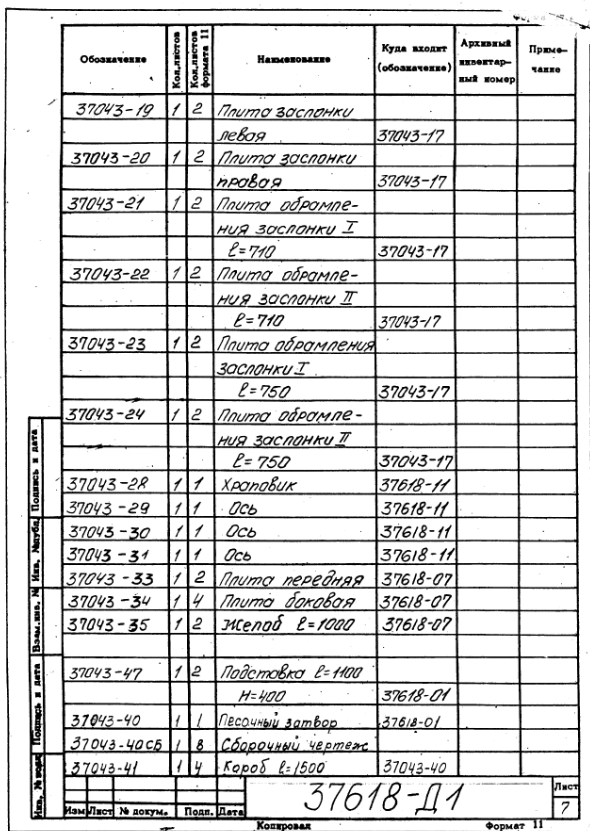 Обозначение Кол.листов Кол.листов формата 11 Наименование Куда входит (обозначение) Архивный инвентар-ный номер Приме-чание
37043-19 1 2 Плита заслонки
левая 37043-17
37043-20 1 2 Плита заслонки
правая 37043-17
37043-21 1 2 Плита обрамле-
ния заслонки I
ℓ=710 37043-17
37043-22 1 2 Плита обрамле-
ния заслонки II
ℓ=710 37043-17
37043-23 1 2 Плита обрамления
заслонки I
ℓ=750 37043-17
37043-24 1 2 Плита обрамле-
ния заслонки II
ℓ=750 37043-17
37043-28 1 1 Храповик 37618-11
37043-29 1 1 Ось 37618-11
37043-30 1 1 Ось 37618-11
37043-31 1 1 Ось 37618-11
37043-33 1 2 Плита передняя 37618-07
37043-34 1 4 Плита боковая 37618-07
37043-35 1 2 Желоб ℓ=1000 37618-07
37043-47 1 2 Подставка ℓ=1100
H=400 37618-01
37043-40 1 1 Песочный затвор 37618-01
37043-40СБ 1 8 Сборочный чертеж
37043-41 1 4 Короб ℓ=1500 37043-40
Подпись и дата
Взам.инв. №
Подпись и дата
Изм Лист № докум. Подп. Дата
37618-Д1
Лист
7
Копировал Формат 11